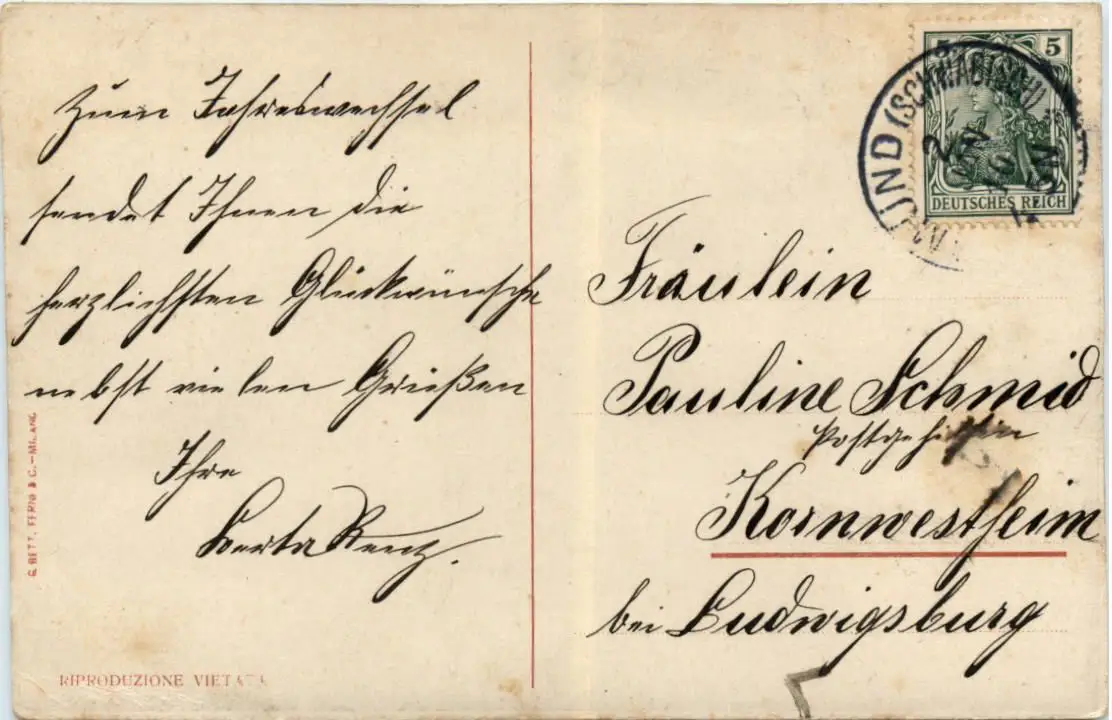 Zum Jahreswechsel
sendet Ihnen die
herzlichsten Glückwünsche
nebst vielen Grüßen
Ihre
Berta Renz.
G. BETT. FERNI & C.-MILANO
RIPRODUZIONE VIETATA
5 5
DEUTSCHES REICH
GMÜND (SCHWÄBISCH)
2
JAN
10
Fräulein
Pauline Schmid
Postgehilfin
Kornwestheim
bei Ludwigsburg